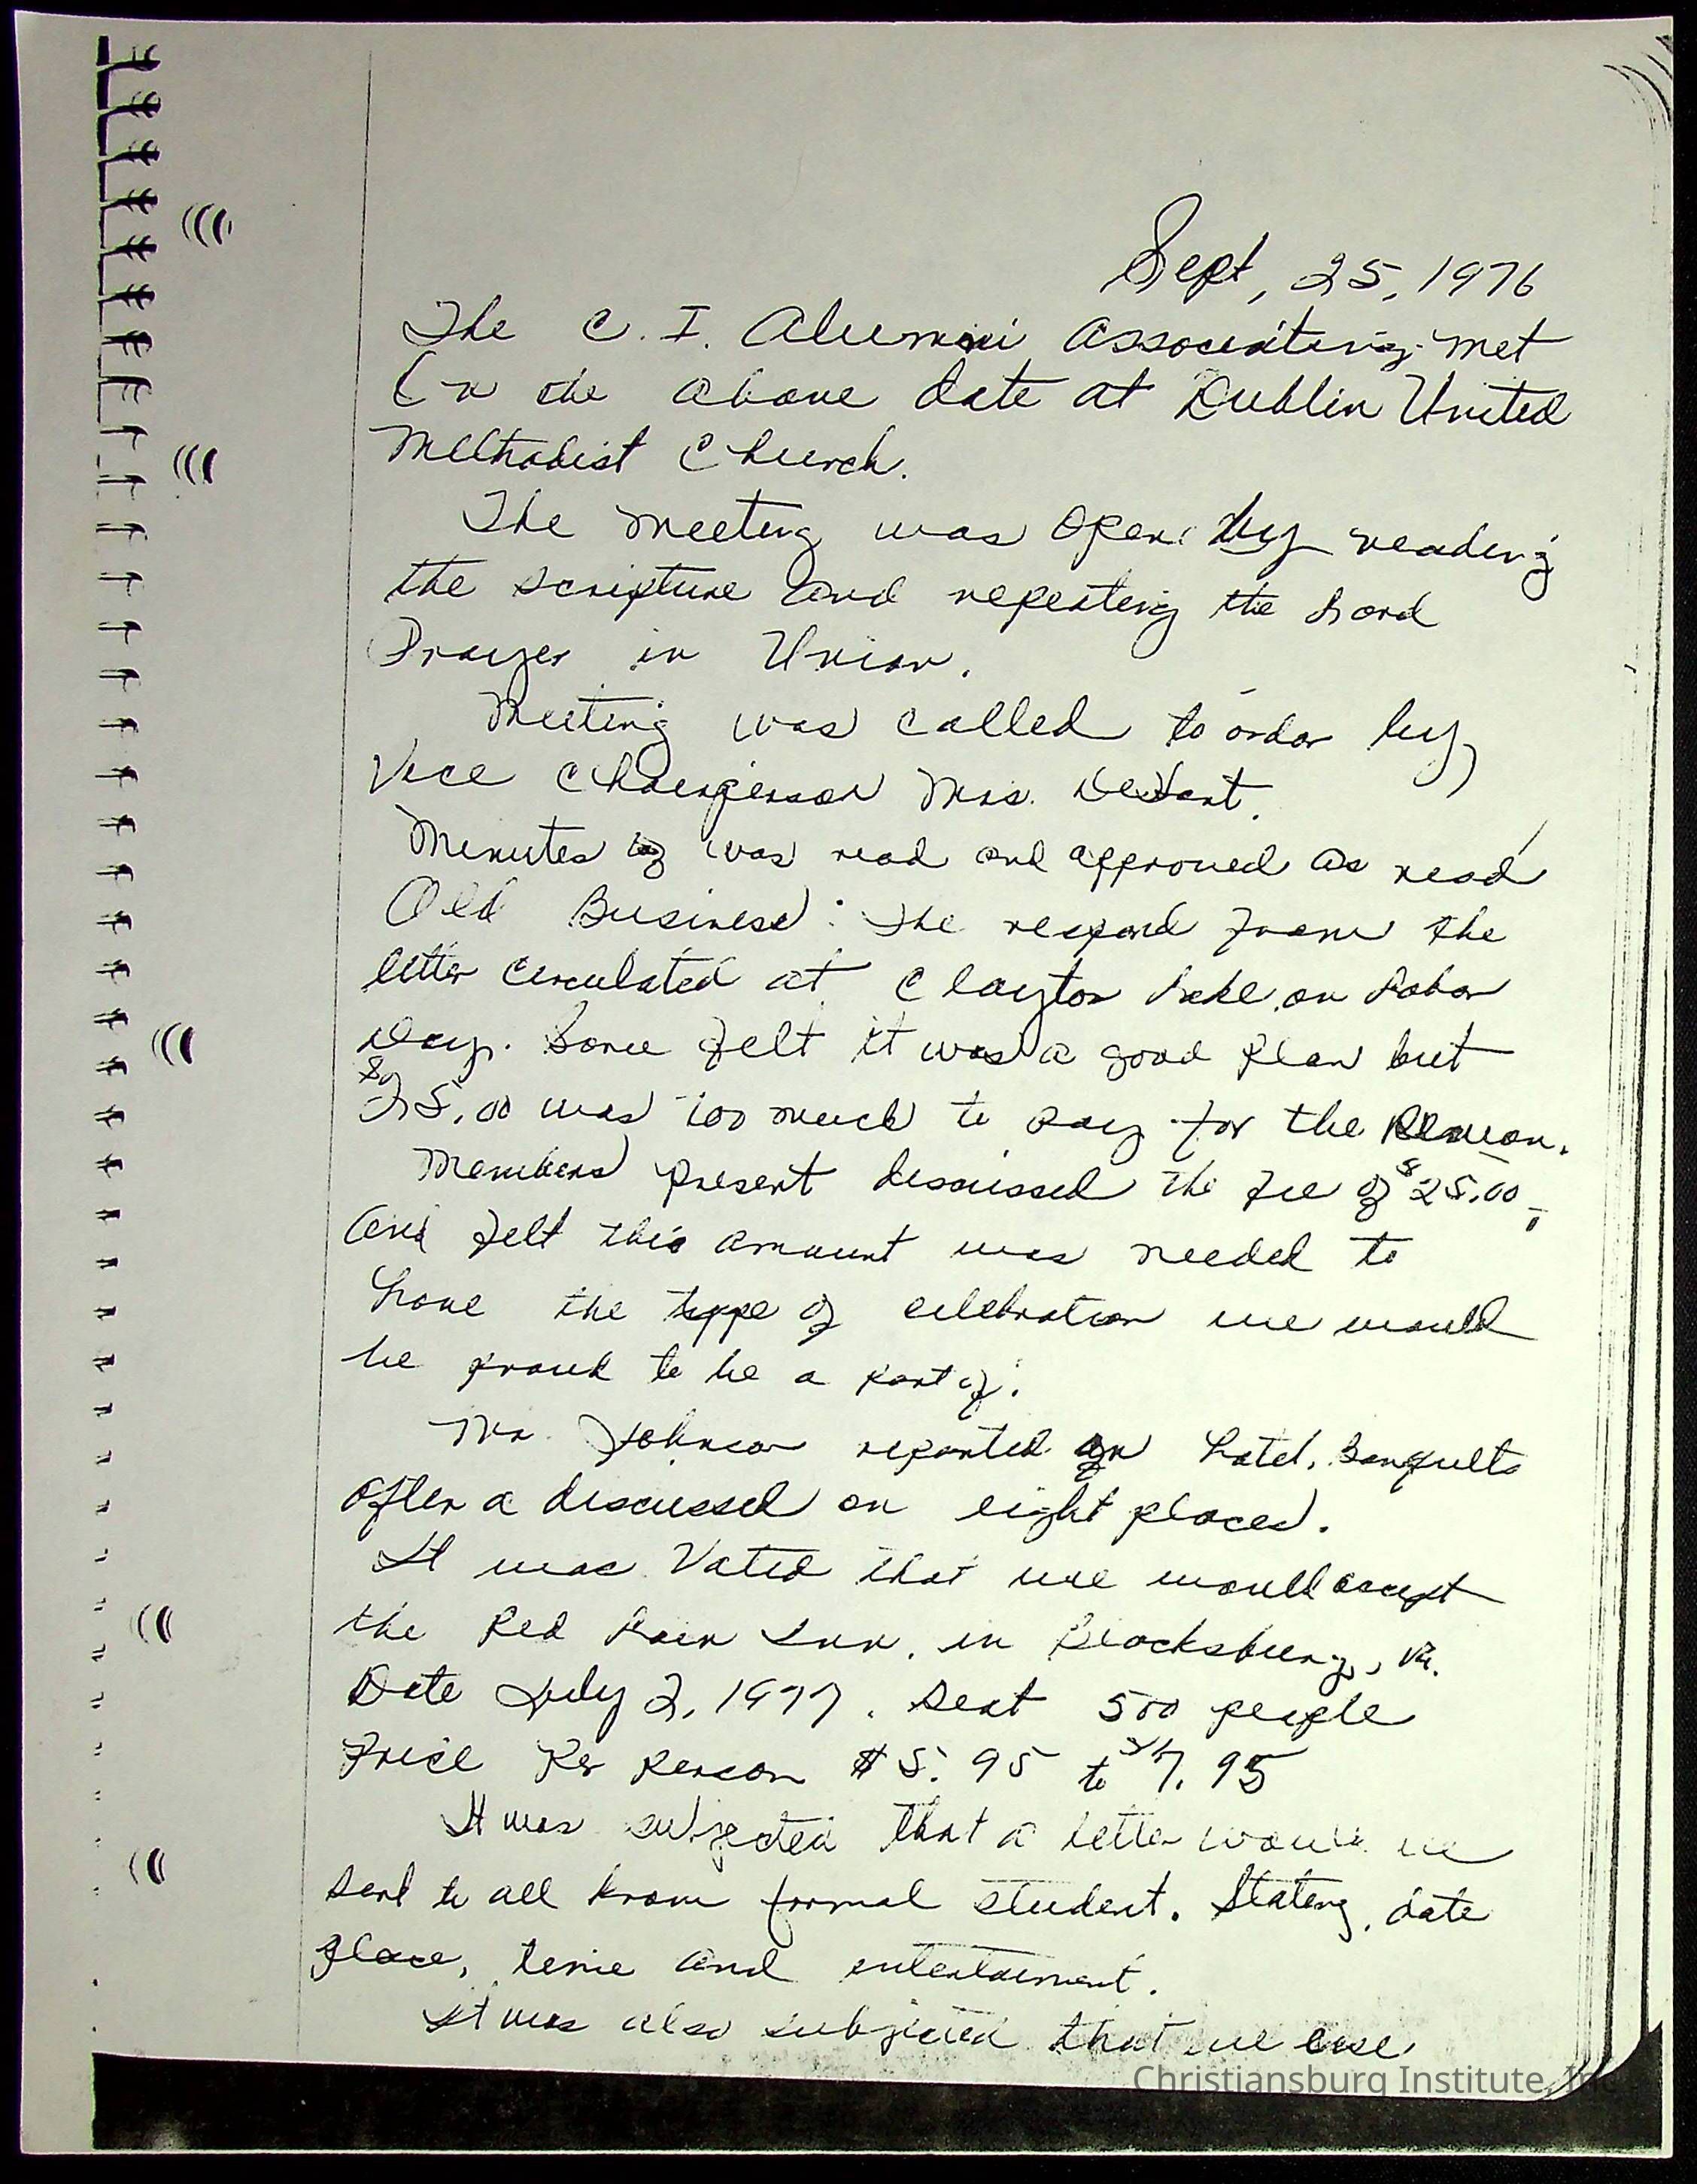 Sept, 25, 1976
The C. I. Alumni Association met
On the above date at Dublin United
Methodist Church.
The meeting was open by reading
the scripture and repeating the Lord
Prayer in Union.
Meeting was called to order by
Vice Chairperson Mrs. DeHart.
Minutes was read and approved as read
Old Business: The respond from the
letter circulated at Claytor Lake on Labor
Day. Some felt it was a good plan but
$25.00 was too much to pay for the Reunion.
Members present discussed the fee of $25.00,
and felt this amount was needed to
have the type of celebration we would
be proud to be a part of.
Mr. Johnson reported on hotel, Banquets
After a discussed on eight places.
It was Voted that we would accept
the Red Lion Inn, in Blacksburg, Va.
Date July 2, 1977. Seat 500 people
Price Per Person $5.95 to $7.95
It was subjected that a letter would be
sent to all known formal student. Stating, date
place, time and entertainment.
It was also subjected that we use
Christiansburg Institute, Inc